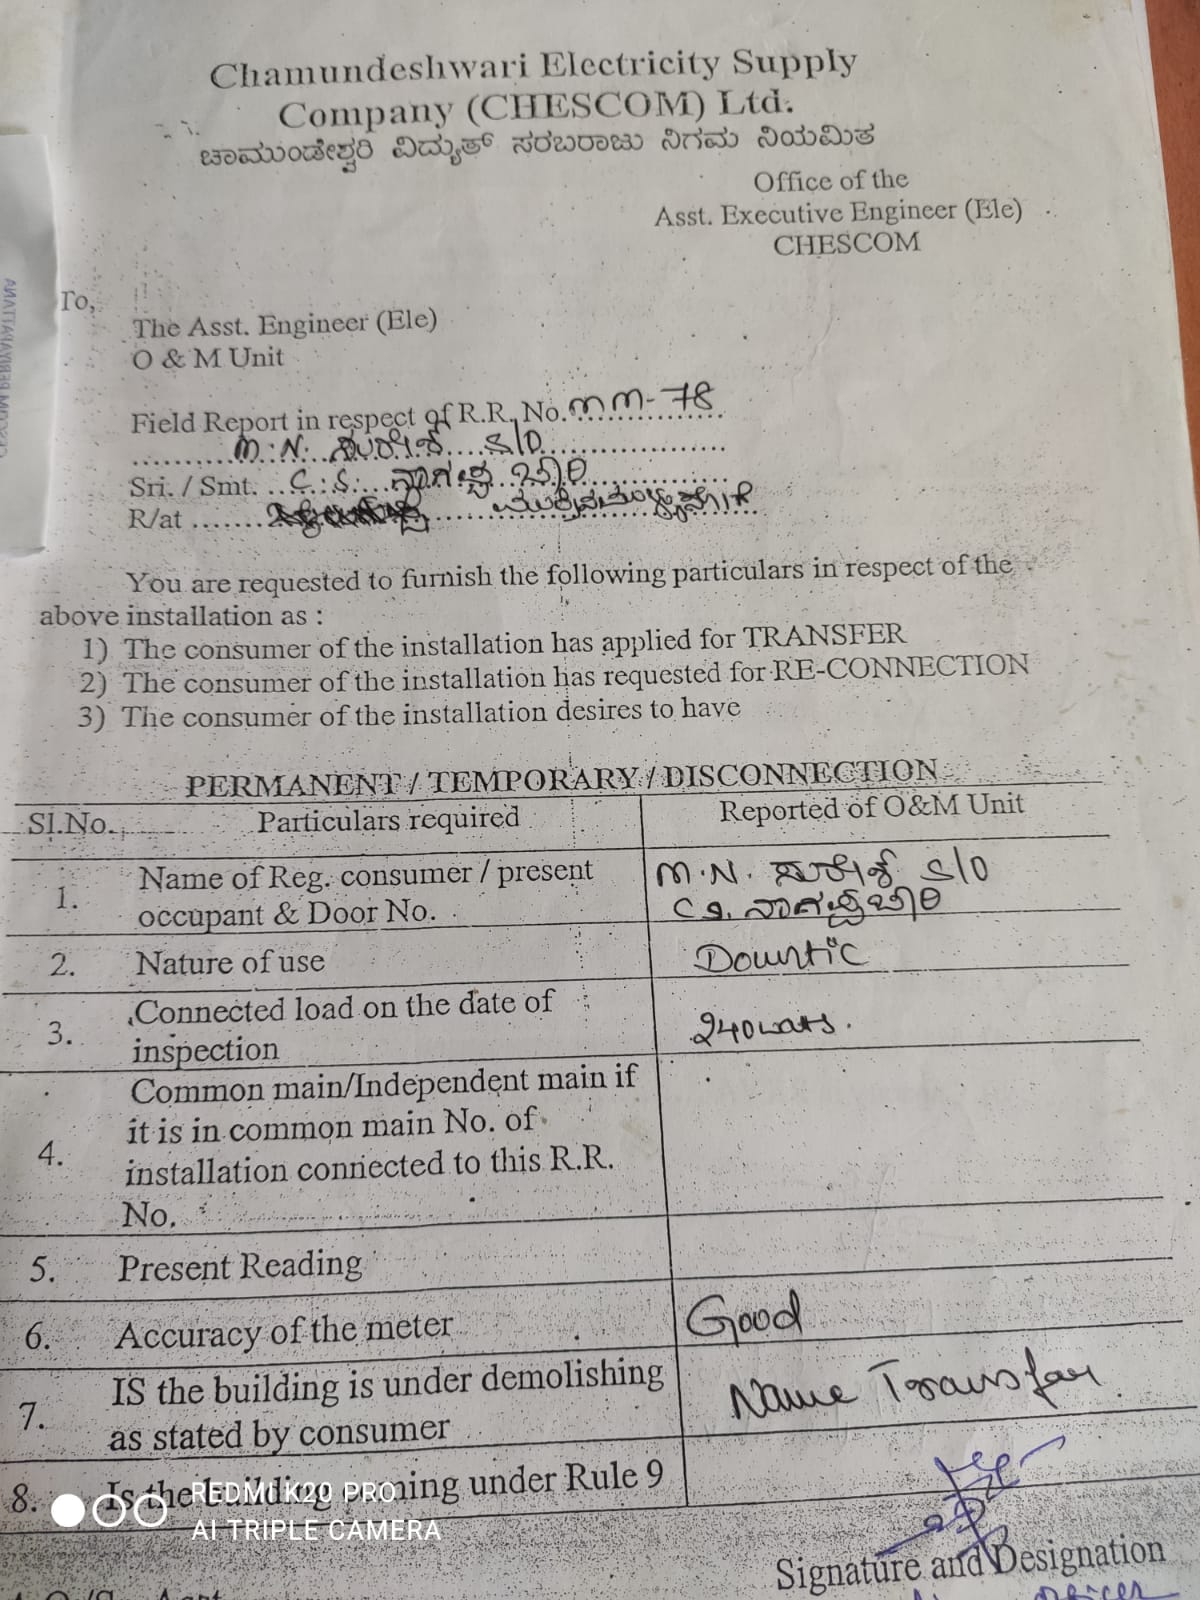 Chamundeshwari Electricity Supply
Company (CHESCOM) Ltd.
ಚಾಮುಂಡೇಶ್ವರಿ ವಿದ್ಯುತ್ ಸರಬರಾಜು ನಿಗಮ ನಿಯಮಿತ
Office of the
Asst. Executive Engineer (Ele)
CHESCOM
To,
The Asst. Engineer (Ele)
O & M Unit
Field Report in respect of R.R. No. MM-78
M.N. ಸುರೇಶ್ S/O
Sri. / Smt. C.S. ನಾಗಪ್ಪ
R/at
You are requested to furnish the following particulars in respect of the
above installation as :
1) The consumer of the installation has applied for TRANSFER
2) The consumer of the installation has requested for RE-CONNECTION
3) The consumer of the installation desires to have
PERMANENT / TEMPORARY / DISCONNECTION
Sl.No. Particulars required Reported of O&M Unit
1. Name of Reg. consumer / present M.N. ಸುರೇಶ್ S/O
occupant & Door No. C S.
2. Nature of use Domestic
3. Connected load on the date of
inspection 240 wats.
4. Common main/Independent main if
it is in common main No. of
installation connected to this R.R.
No.
5. Present Reading
6. Accuracy of the meter Good
7. IS the building is under demolishing Name Transfar
as stated by consumer
8. Is the building coming under Rule 9
REDMI K20 PRO
AI TRIPLE CAMERA
Signature and Designation
Officer